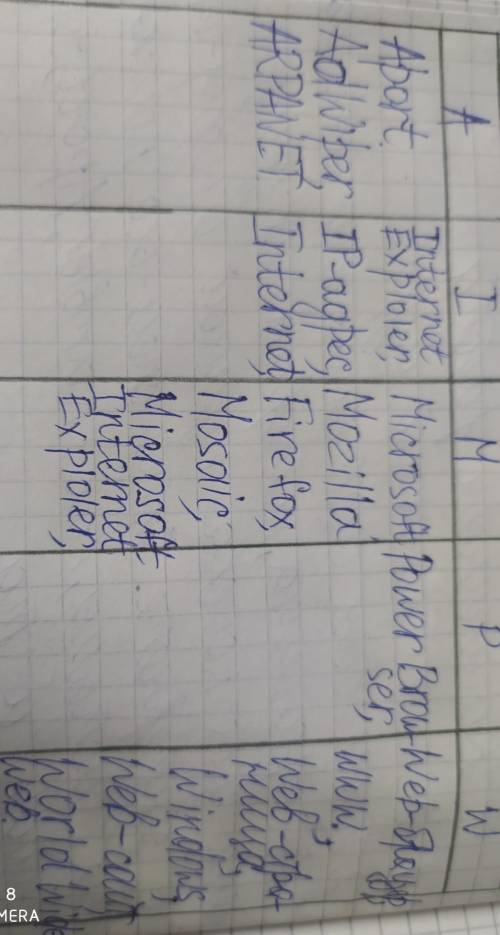 A
Apart.
AdWiper
ARPANET,
I
Internet
Exploler,
IP-адрес,
Internet,
M
Microsoft
Mozilla
Firefox,
Mosaic,
Microsoft
Internet
Exploler,
P
Power Brow-
ser,
W
Web-браузер
WWW.
Web-стра-
ница,
Windows,
Web-сайт,
World Wide
Web.
8
MERA